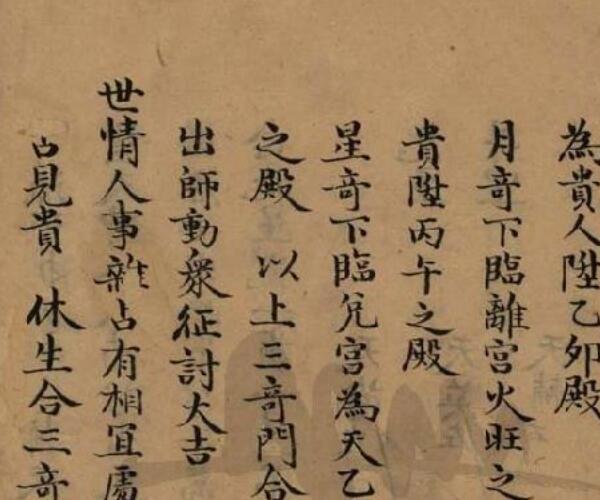 為貴人陞乙卯殿
月奇下臨離宮火旺之
貴陞丙午之殿
星奇下臨兌宮為天乙
之殿 以上三奇門合
出師動衆征討大吉
世情人事雜占有相宜處
占見貴 休生合三奇